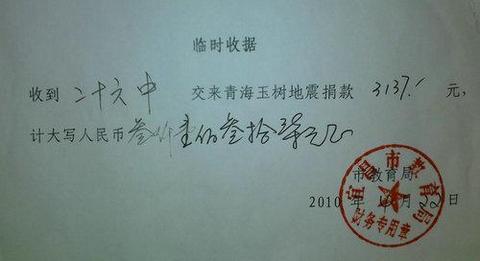 临时收据
收到 二十六中 交来青海玉树地震捐款 3137.1 元，
计大写人民币 叁仟壹佰叁拾柒元
市教育局
2010年 月 日
宜昌市教育局
财务专用章